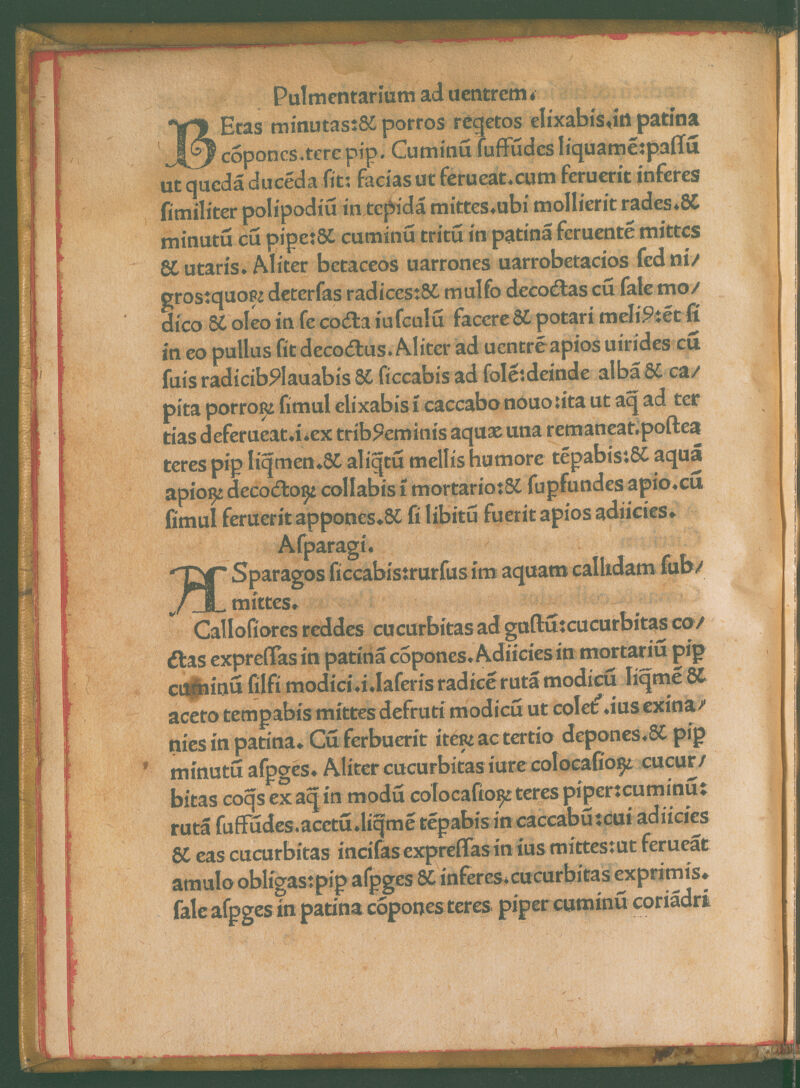 Pulmentarium ad uentrem.
BEtas minutas:& porros reqetos elixabis.in patina
cõpones.tere pip. Cuminũ ſuffũdes liquamẽ:paſſũ
ut quedã ducẽda ſit: facias ut ferueat.cum feruerit inferes
ſimiliter polipodiũ in tepidã mittes.ubi mollierit rades.&
minutũ cũ pipe:& cuminũ tritũ in patinã feruentẽ mittes
& utaris. Aliter betaceos uarrones uarrobetacios ſed ni/
gros:quoꝝ deterſas radices:& mulſo decoctas cũ ſale mo/
dico & oleo in ſe cocta iuſculũ facere & potari meliꝰ:ẽt ſi
in eo pullus ſit decoctus.Aliter ad uentrẽ apios uirides cũ
ſuis radicibꝰlauabis & ſiccabis ad ſolẽ:deinde albã & ca/
pita porroꝝ ſimul elixabis ĩ caccabo nouo:ita ut aq̃ ad ter
tias deferueat.i.ex tribꝰeminis aquæ una remaneat.poſtea
teres pip liq̃men.& aliq̃tũ mellis humore tẽpabis:& aquã
apioꝝ decoctoꝝ collabis ĩ mortario:& ſupfundes apio.cũ
ſimul feruerit appones.& ſi libitũ fuerit apios adiicies.
Aſparagi.
ASparagos ſiccabis:rurſus im aquam callidam ſub/
mittes.
Calloſiores reddes cucurbitas ad guſtũ:cucurbitas co/
ctas expreſſas in patinã cõpones.Adiicies in mortariũ pip
cuminũ ſilfi modici.i.laſeris radicẽ rutã modicũ liq̃mẽ &
aceto tempabis mittes defruti modicũ ut coleť.ius exina/
nies in patina. Cũ ferbuerit iteꝝ ac tertio depones.& pip
minutũ aſpges. Aliter cucurbitas iure colocaſioꝝ cucur/
bitas coq̃s ex aq̃ in modũ colocaſioꝝ teres piper:cuminũ:
rutã ſuffũdes.acetũ.liq̃mẽ tẽpabis in caccabũ:cui adiicies
& eas cucurbitas inciſas expreſſas in ius mittes:ut ferueãt
amulo obligas:pip aſpges & inferes.cucurbitas exprimis.
ſale aſpges in patina cõpones teres piper cuminũ coriãdri